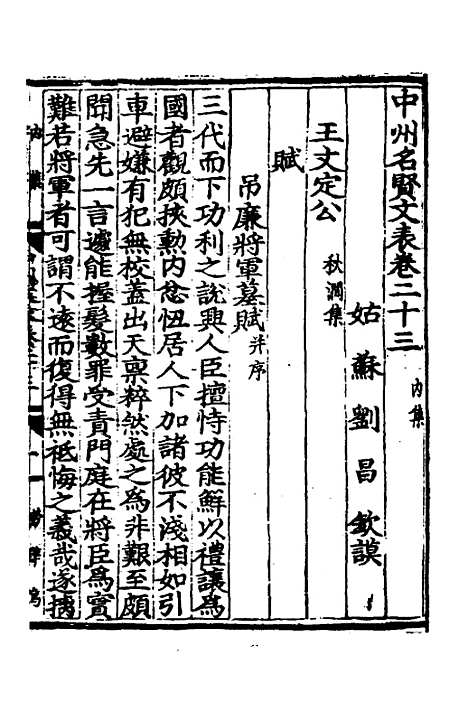 中州名賢文表卷二十三 內集
姑蘇劉昌欽謨
王文定公 秋澗集
賦
吊廉將軍墓賦并序
三代而下功利之說興人臣擅恃功能鮮以禮讓為
國者觀頗挾勳內忿忸居人下加諸彼不淺相如引
車避嫌有犯無校蓋出天稟粹然處之為非艱至頗
聞急先一言遽能握髮數罪受責門庭在將臣為實
難若將軍者可謂不遠而復得無祗悔之義哉遂摛